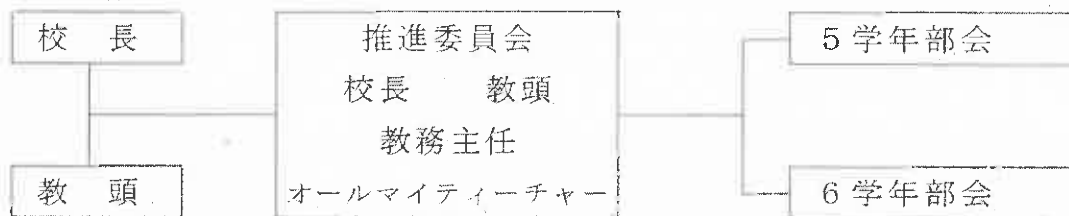 校　長
教　頭
推進委員会
校長　　教頭
教務主任
オールマイティーチャー
5学年部会
6学年部会